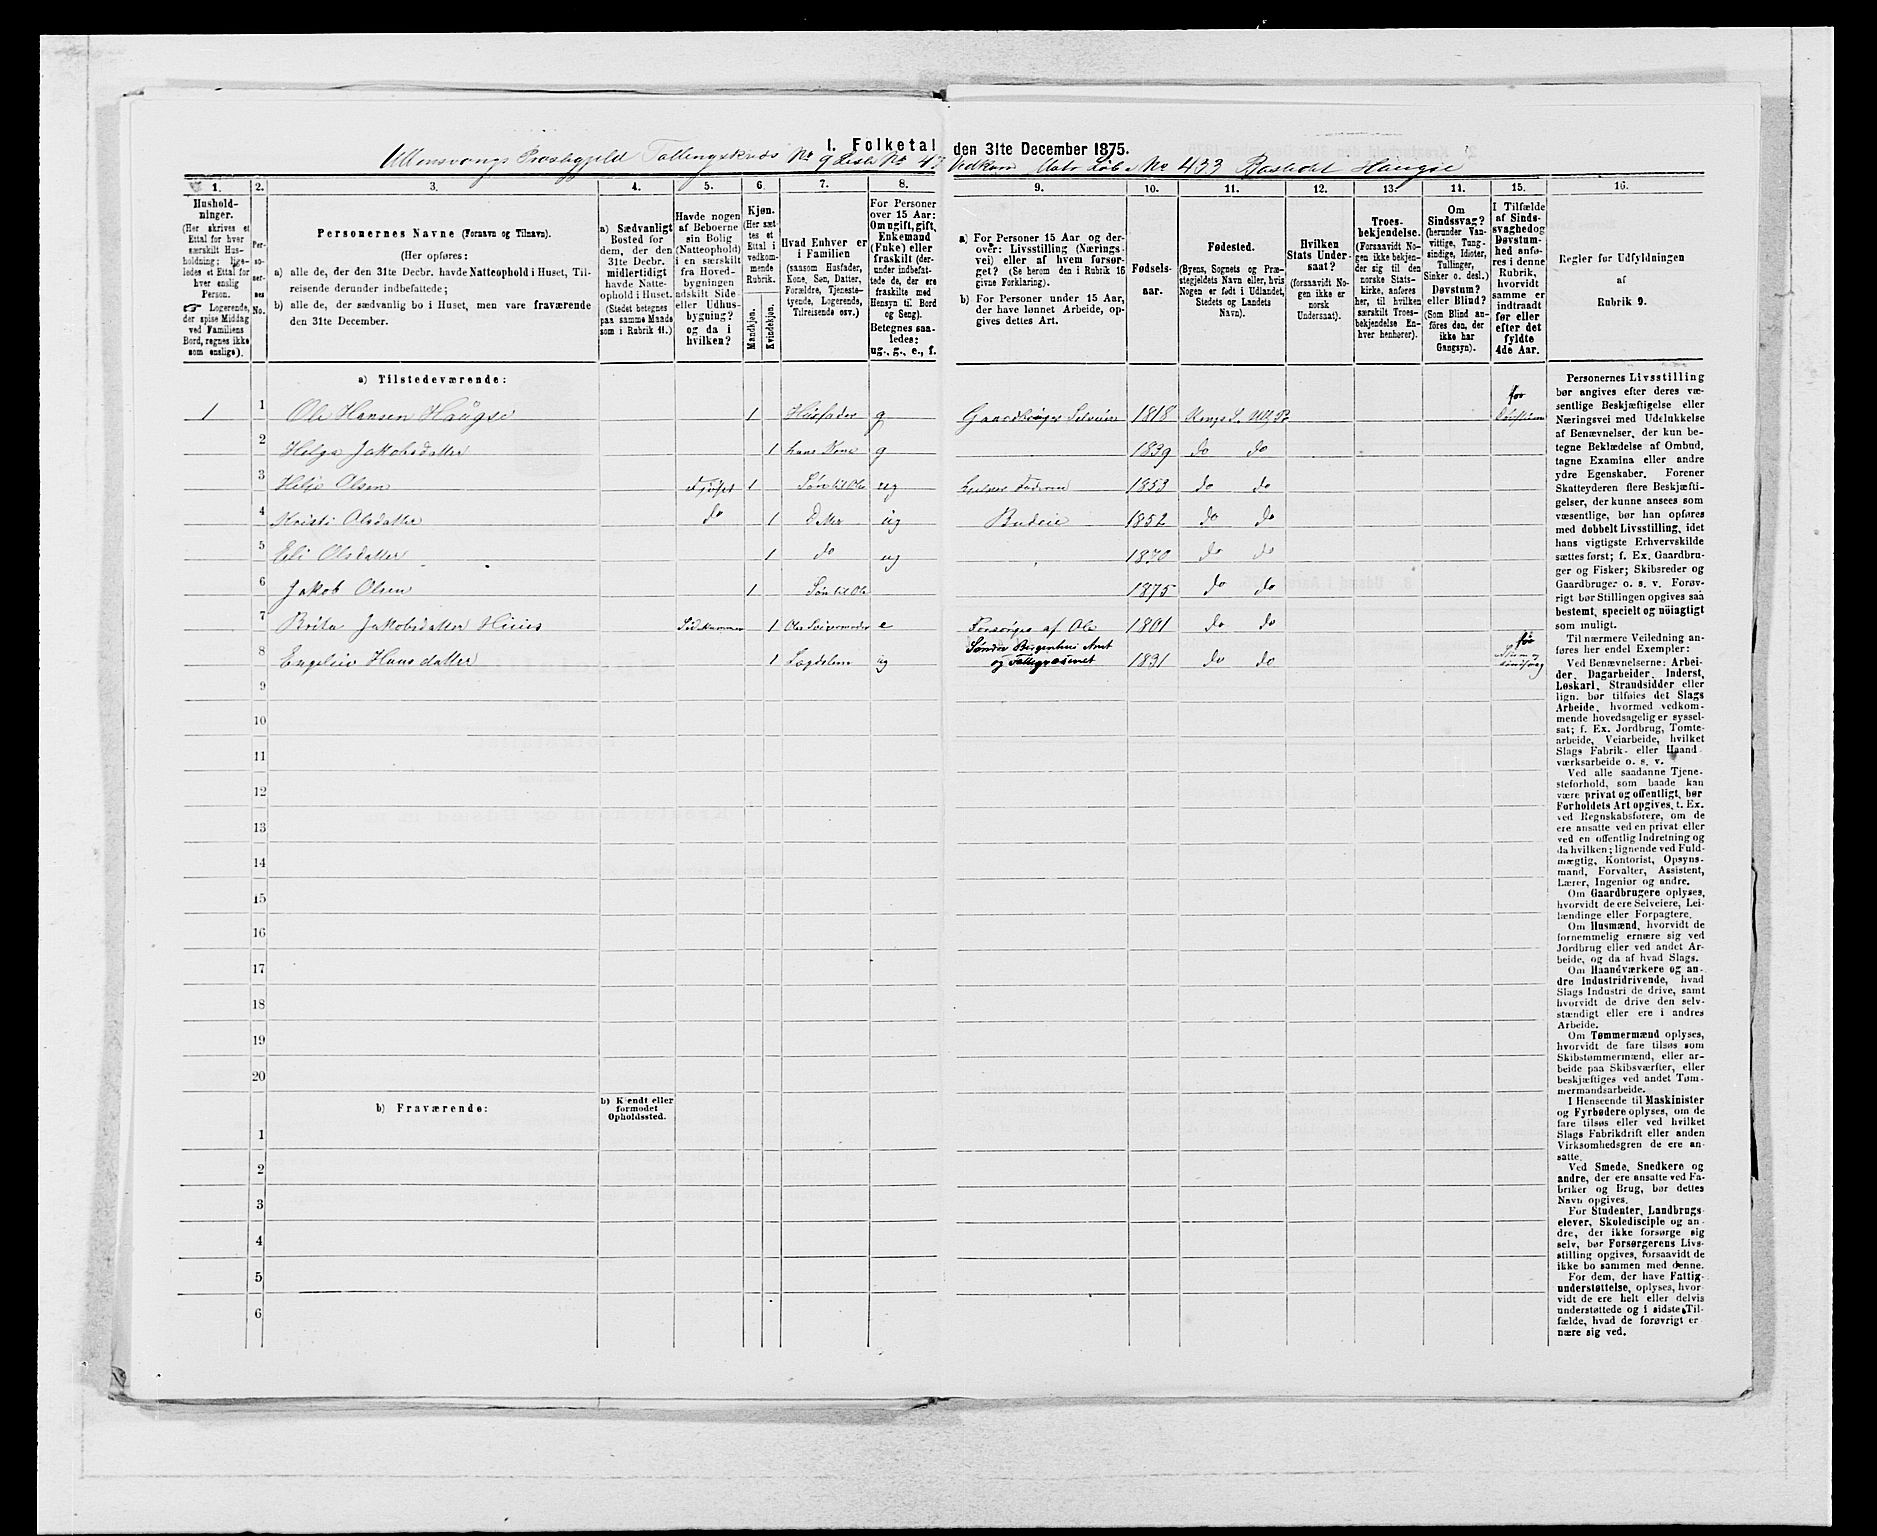 I. Folketal den 31te December 1875.
Ullensvangs Præstegjeld Tællingskreds No 9 Liste No 43 Vedkom Matr Løbe No 433 Bosted Haugse
1. 2. 3. 4. 5. 6. 7. 8. 9. 10. 11. 12. 13. 14. 15. 16.
Hushold-
ninger.
(Her skrives et
Ettal for hver
særskilt Hus-
holdning; lige-
ledes et Ettal for
hver enslig
Person.
☞ Logerende,
der spise Middag
ved Familiens
Bord, regnes ikke
som enslige).
Per-
so-
ner-
nes
No.
Personernes Navne (Fornavn og Tilnavn).
(Her opføres:
a) alle de, der den 31te Decbr. havde Natteophold i Huset, Til-
reisende derunder indbefattede;
b) alle de, der sædvanlig bo i Huset, men vare fraværende
den 31te December.
a) Sædvanligt
Bosted for
dem, der den
31te Decbr.
midlertidigt
havde Natte-
ophold i Huset.
(Stedet betegnes
paa samme Maade
som i Rubrik 11.)
Havde nogen
af Beboerne
sin Bolig
(Natteophold)
i en særskilt
fra Hoved-
bygningen
adskilt Side-
eller Udhus-
bygning?
og da i
hvilken?
Kjøn.
(Her sæt-
tes et
Ettal i
vedkom-
mende
Rubrik.
Mandkjøn.
Kvindekjøn.
Hvad Enhver er
i Familien
(saasom Husfader,
Kone, Søn, Datter,
Forældre, Tjeneste-
tyende, Logerende,
Tilreisende osv.)
For Personer
over 15 Aar:
Om ugift, gift,
Enkemand
(Enke) eller
fraskilt (der-
under indbefat-
tede de, der ere
fraskilte med
Hensyn til Bord
og Seng).
Betegnes saa-
ledes:
ug., g., e., f.
a) For Personer 15 Aar og der-
over: Livsstilling (Nærings-
vei) eller af hvem forsør-
get? (Se herom den i Rubrik 16
givne Forklaring).
b) For Personer under 15 Aar,
der have lønnet Arbeide, op-
gives dettes Art.
Fødsels-
aar.
Fødested.
(Byens, Sognets og Præ-
stegjeldets Navn eller, hvis
Nogen er født i Udlandet,
Stedets og Landets
Navn).
Hvilken
Stats Under-
saat?
(forsaavidt No-
gen ikke er
norsk
Undersaat).
Troes-
bekjendelse.
(Forsaavidt No-
gen ikke bekjen-
der sig til den
norske Stats-
kirke, anføres
her, til hvilken
særskilt Troes-
bekjendelse En-
hver henhører).
Om
Sindssvag?
(herunder Van-
vittige, Tung-
sindige, Idioter,
Tullinger,
Sinker o. desl.)
Døvstum?
eller Blind?
(Som Blind an-
føres den, der
ikke har
Gangsyn).
I Tilfælde
af Sinds-
svaghed og
Døvstum-
hed anfø-
res i denne
Rubrik,
hvorvidt
samme er
indtraadt
før eller
efter det
fyldte
4de Aar.
Regler for Udfyldningen
af
Rubrik 9.
a) Tilstedeværende:
1 1 Ole Hansen Haugse 1 Husfader g Gaardbruger Selveier 1818 Kongs S. Ull. P. før
2 Helga Jakobsdatter 1 hans Kone g 1839 do do
3 Helje Olsen 1 Søn til Ole ug hjelper Faderen 1853 do do
4 Kristi Olsdatter do 1 Datter ug Budeie 1852 do do
5 Eli Olsdatter 1 do ug 1870 do do
6 Jakob Olsen 1 Søn til Ole 1875 do do
7 Brita Jakobsdatter 1 Oles Svigermoder e Forsørges af Ole 1801 do do
8 Hansdatter 1 Lægdslem ug Søndre Bergenhus Amt og Fattigvæsenet 1831 do do før
9
10
11
12
13
14
15
16
17
18
19
20
b) Fraværende:
b) Kjendt eller
formodet
Opholdssted.
1
2
3
4
5
6
Personernes Livsstilling
bør angives efter deres væ-
sentlige Beskjæftigelse eller
Næringsvei med Udelukkelse
af Benævnelser, der kun be-
tegne Beklædelse af Ombud,
tagne Examina eller andre
ydre Egenskaber. Forener
Skatteyderen flere Beskjæfti-
gelser, der kunne ansees som
væsentlige, bør han opføres
med dobbelt Livsstilling, idet
hans vigtigste Erhvervskilde
sættes først; f. Ex. Gaardbru-
ger og Fisker; Skibsreder og
Gaardbruger o. s. v. Forøv-
rigt bør Stillingen opgives saa
bestemt, specielt og nøiagtigt
som muligt.
Til nærmere Veiledning an-
føres her endel Exempler:
Ved Benævnelserne: Arbei-
der, Dagarbeider, Inderst,
Løskarl, Strandsidder eller
lign. bør tilføies det Slags
Arbeide, hvormed vedkom-
mende hovedsagelig er syssel-
sat; f. Ex. Jordbrug, Tomte-
arbeide, Veiarbeide, hvilket
Slags Fabrik- eller Haand-
værksarbeide o. s. v.
Ved alle saadanne Tjene-
steforhold, som baade kan
være privat og offentligt, bør
Forholdets Art opgives, t. Ex.
ved Regnskabsførere, om de
ere ansatte ved en privat eller
ved en offentlig Indretning og
da hvilken; lignende ved Fuld-
mægtig, Kontorist, Opsyns-
mand, Forvalter, Assistent,
Lærer, Ingeniør og andre.
Om Gaardbrugere oplyses,
hvorvidt de ere Selveiere, Lei-
lændinge eller Forpagtere.
Om Husmænd, hvorvidt de
fornemmelig ernære sig ved
Jordbrug eller ved andet Ar-
beide, og da af hvad Slags.
Om Haandværkere og an-
dre Industridrivende, hvad
Slags Industri de drive, samt
hvorvidt de drive den selv-
stændigt eller ere i andres
Arbeide.
Om Tømmermænd oplyses,
hvorvidt de fare tilsøs som
Skibstømmermænd, eller ar-
beide paa Skibsværfter, eller
beskjæftiges ved andet Tøm-
mermandsarbeide.
I Henseende til Maskinister
og Fyrbødere oplyses, om de
fare tilsøs eller ved hvilket
Slags Fabrikdrift eller anden
Virksomhedsgren de ere an-
satte.
Ved Smede, Snedkere og
andre, der ere ansatte ved Fa-
briker og Brug, bør dettes
Navn opgives.
For Studenter, Landbrugs-
elever, Skoledisciple og an-
dre, der ikke forsørge sig
selv, bør Forsørgerens Livs-
stilling opgives, forsaavidt de
ikke bo sammen med denne.
For dem, der have Fattig-
understøttelse, oplyses, hvor-
vidt de ere helt eller delvis
understøttede og i sidste Til-
fælde, hvad de forøvrigt er-
nære sig ved.